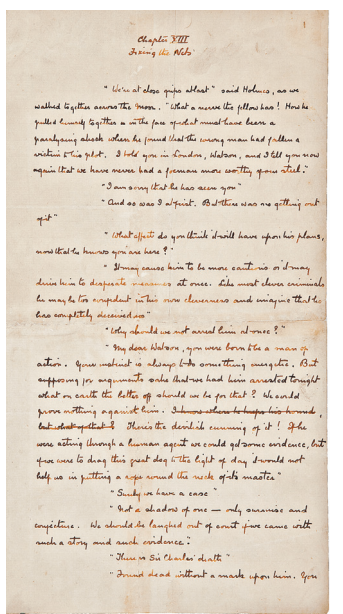 1
Chapter XIII
Fixing the Nets
"We're at close grips at last" said Holmes, as we
walked together across the Moor. "What a nerve the fellow has! How he
pulled himself together in the face of what must have been a
paralysing shock when he found that the wrong man had fallen a
victim to his plot. I told you in London, Watson, and I tell you now
again that we have never had a foeman more worthy of our steel."
"I am sorry that he has seen you"
"And so was I at first. But there was no getting out
of it"
"What effect do you think it will have upon his plans,
now that he knows you are here?"
"It may cause him to be more cautious or it may
drive him to desperate measures at once. Like most clever criminals
he may be too confident in his own cleverness and imagine that he
has completely deceived us"
"Why should we not arrest him at once?"
"My dear Watson, you were born to be a man of
action. Your instinct is always to do something energetic. But
supposing for argument's sake that we had him arrested tonight
what on earth the better off should we be for that? We could
prove nothing against him. I know where he keeps his hound,
but what of that? There's the devilish cunning of it! If he
were acting through a human agent we could get some evidence, but
if we were to drag this great dog to the light of day it would not
help us in putting a rope round the neck of its master"
"Surely we have a case"
"Not a shadow of one — only surmise and
conjecture. We should be laughed out of court if we came with
such a story and such evidence."
"There is Sir Charles' death"
"Found dead without a mark upon him. You